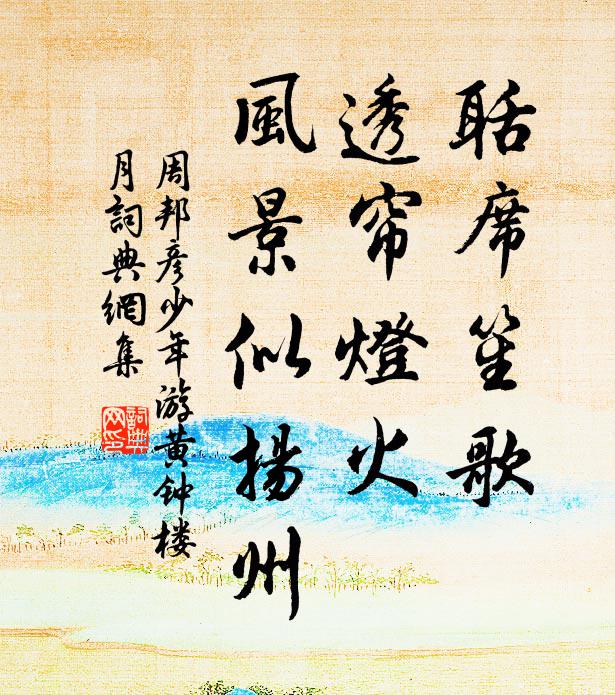 聒席笙歌
透帘燈火
風景似揚州
周邦彦少年游黄钟楼
月詞典網集
詞典
网印